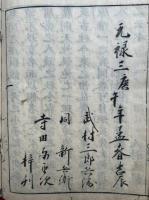 元禄三庚午年孟春吉辰
武村三郎兵衛
同新兵衛
寺田与平次
梓刊